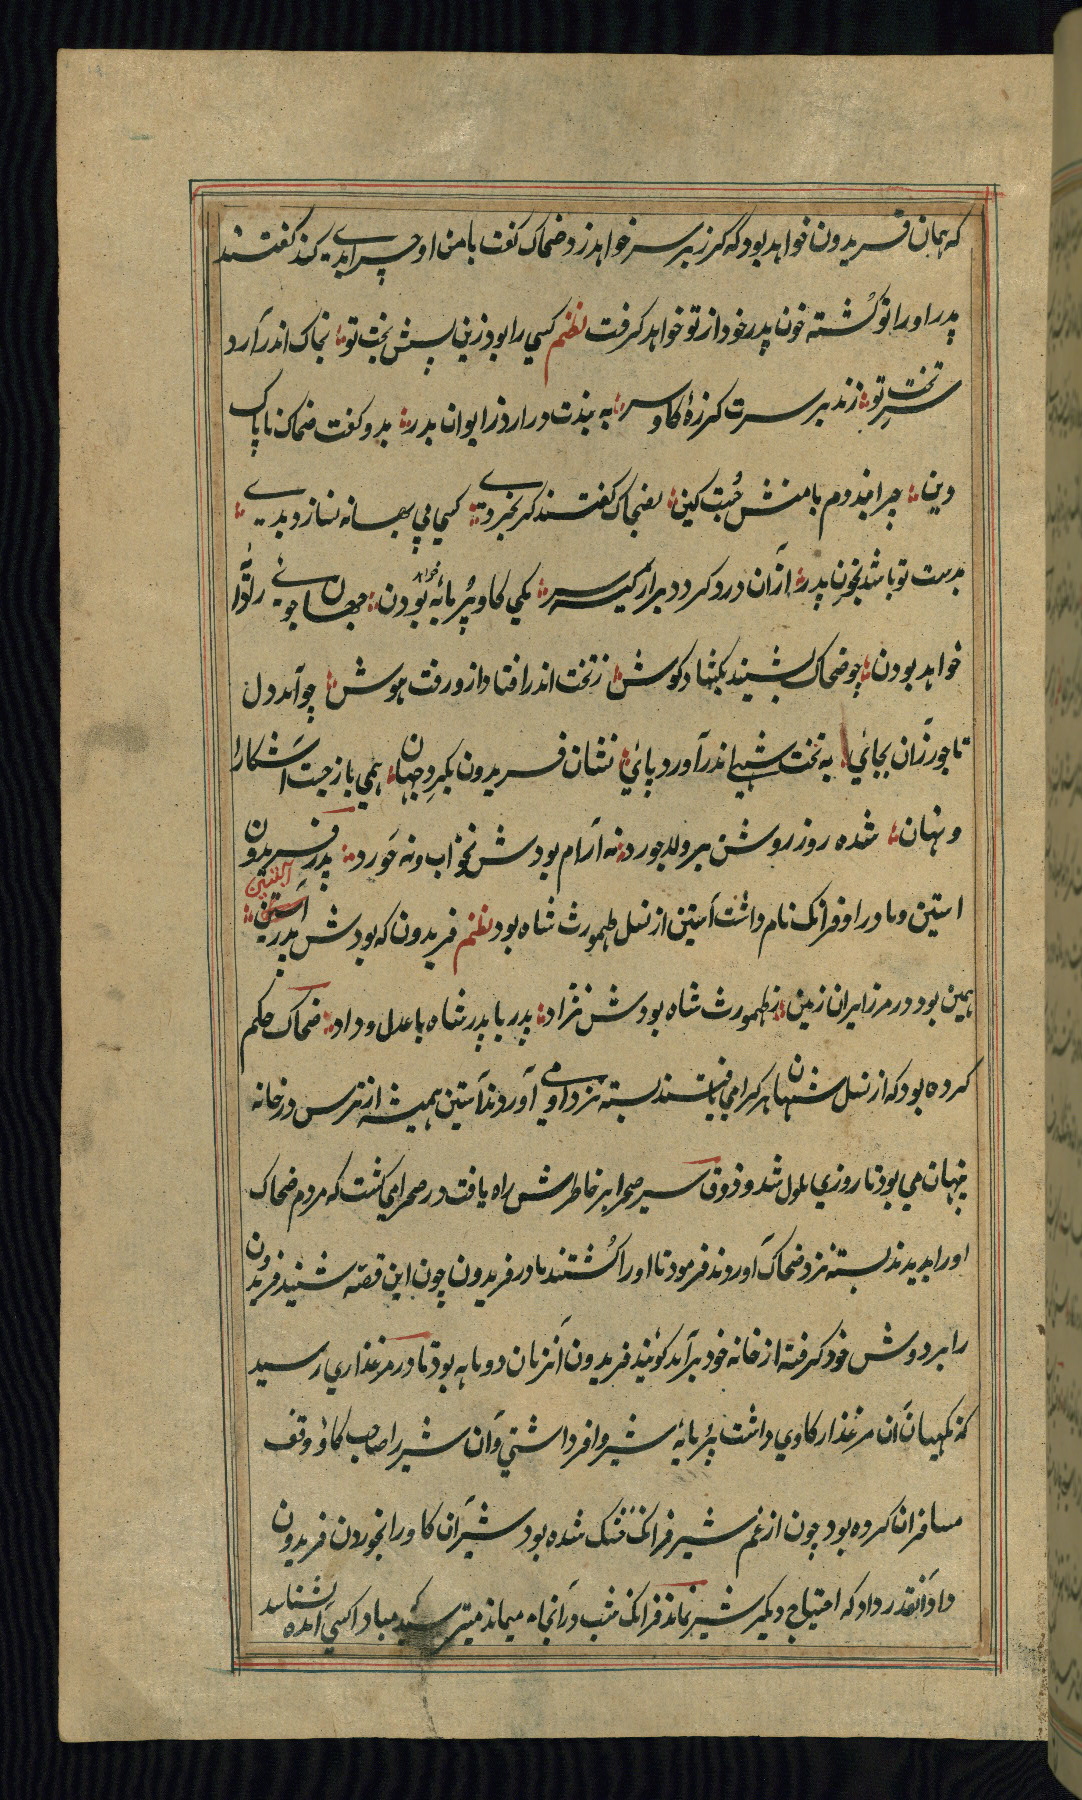 که همان فریدون خواهد بود که گرز بر سر خواهد زد ضحاک گفت با من او چرا بدی کند گفتند
پدر او را تو کشته خون پدر خود از تو خواهد گرفت نظم کسی را بود زین پسش بخت تو بخاک اندر آرد
سر تخت تو زند بر سرت گرزهٔ گاو سر به بندت در آرد ز ایوان بدر بدو گفت ضحاک ناپاک
دین چرا بنددم با منش چیست کین بضحاک گفتند گر بخردی کسی بی بهانه نسازد بدی
بدست تو باشد بخون پدر از آن درد گردد پر از کینه سر یکی گاو پرمایه خواهد بودن جهانجوی را دایه
خواهد بودن چو ضحاک بشنید بگشاد گوش ز تخت اندر افتاد و زو رفت هوش چو آمد دل
تاجور زان بجای به تخت شهی اندر آورد پای نشان فریدون بگرد جهان همی باز جست آشکارا
و نهان شده روز روشن برو لاجورد نه آرام بودش نخواب و نه خورد پدر فریدون
آبتین
استین و مادر او فرانک نام داشت آستین از نسل طهمورث شاه بود نظم فریدون که بودش پدر آستین
همین بود در مرز ایران زمین ز طهمورث شاه بودش نژاد پدر با پدر شاه با عدل و داد ضحاک حکم
کرده بود که از نسل شهان هر کرا می یافتند بسته نزد او می آوردند آستین همیشه از ترس در خانه
پنهان می بود تا روزی ملول شد و ذوق سیر صحرا بر خاطرش راه یافت در صحرا می گشت که مردم ضحاک
او را بدیدند بسته نزد ضحاک آوردند فرمود تا او را کشتند مادر فریدون چون این قصه شنید فریدون
را بر دوش خود گرفته از خانه خود بر آمد گویند فریدون آنزمان دو ماهه بود تا در مرغذاری رسید
که نگهبان آن مرغذار گاوی داشت پرمایه شیر وافر داشتی و آن شیر را صاحب گاو وقف
مسافران کرده بود چون از غم شیر فرانک خشک شده بود شیر آن گاو را بخوردن فریدون
داد آنقدر داد که احتیاج دیگر شیر نماند فرانک شب در آنجا میماند میترسید مبادا کسی آمده بشناسد